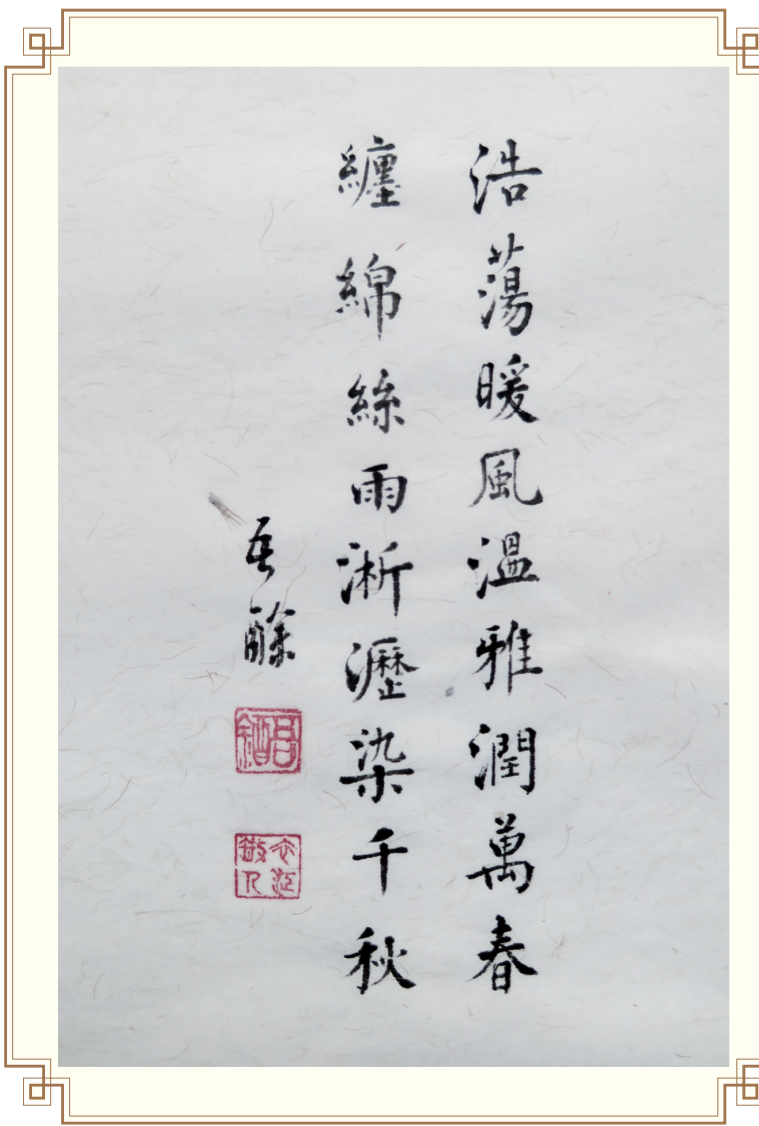 浩蕩暖風溫雅潤萬春
纏綿絲雨淅瀝染千秋